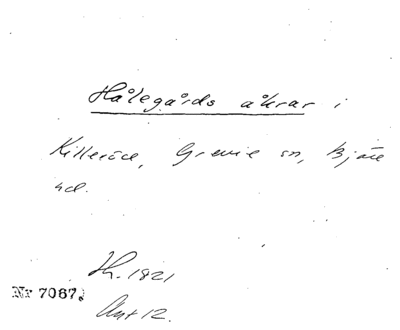 Hålegårds åkrar i
Killeröd, Grevie sn, Bjäre
hd.
Hh. 1821
Nr 7067.
Akt 12.